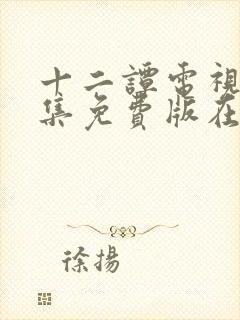 十二譚電視
集免費版在
徐揚